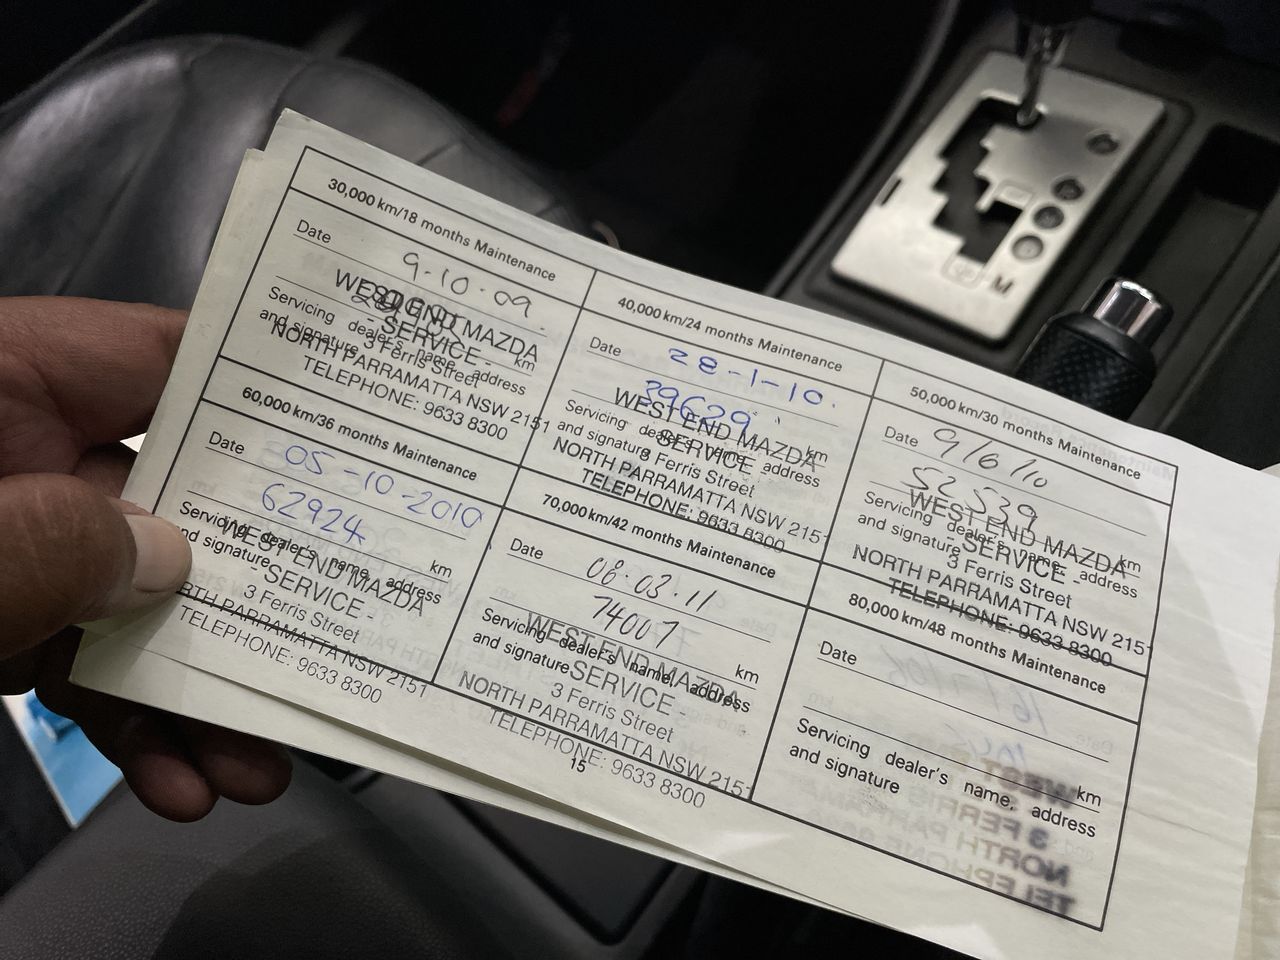 30,000 km/18 months Maintenance
Date 9-10-09.
km
Servicing dealer's name, address
and signature
WEST END MAZDA
- SERVICE -
3 Ferris Street
NORTH PARRAMATTA NSW 2151
TELEPHONE: 9633 8300
40,000 km/24 months Maintenance
Date 28-1-10.
39629 km
Servicing dealer's name, address
and signature
WEST END MAZDA
- SERVICE -
3 Ferris Street
NORTH PARRAMATTA NSW 215
TELEPHONE: 9633 8300
50,000 km/30 months Maintenance
Date 9/6/10
52539 km
Servicing dealer's name, address
and signature
WEST END MAZDA
- SERVICE -
3 Ferris Street
NORTH PARRAMATTA NSW 215
TELEPHONE: 9633 8300
60,000 km/36 months Maintenance
Date 05-10-2010
62924 km
Servicing dealer's name, address
and signature
WEST END MAZDA
SERVICE -
3 Ferris Street
RTH PARRAMATTA NSW 2151
TELEPHONE: 9633 8300
70,000 km/42 months Maintenance
Date 08.03.11
74007 km
Servicing dealer's name, address
and signature
WEST END MAZDA
- SERVICE -
3 Ferris Street
NORTH PARRAMATTA NSW 215
TELEPHONE: 9633 8300
80,000 km/48 months Maintenance
Date
km
Servicing dealer's name, address
and signature
15
M